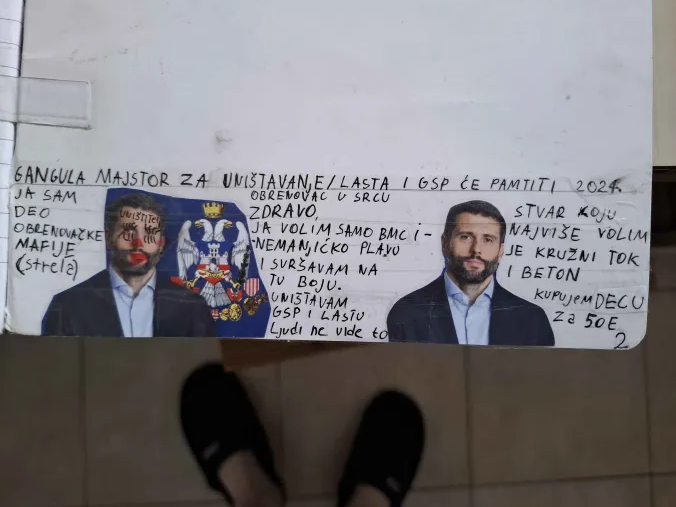 GANGULA MAJSTOR ZA UNIŠTAVANJE/LASTA I GSP ĆE PAMTITI 2024.
JA SAM
DEO
OBRENOVAČKE
MAFIJE
(strela)
UNIŠTITELJ
OBRENOVAC U SRCU
ZDRAVO,
JA VOLIM SAMO BMC I-
-NEMANJIĆKO PLAVU
I SVRŠAVAM NA
TU BOJU.
UNIŠTAVAM
GSP I LASTU
Ljudi ne vide to
STVAR KOJU
NAJVIŠE VOLIM
JE KRUŽNI TOK
I BETON
kupujem DECU
za 50E
2